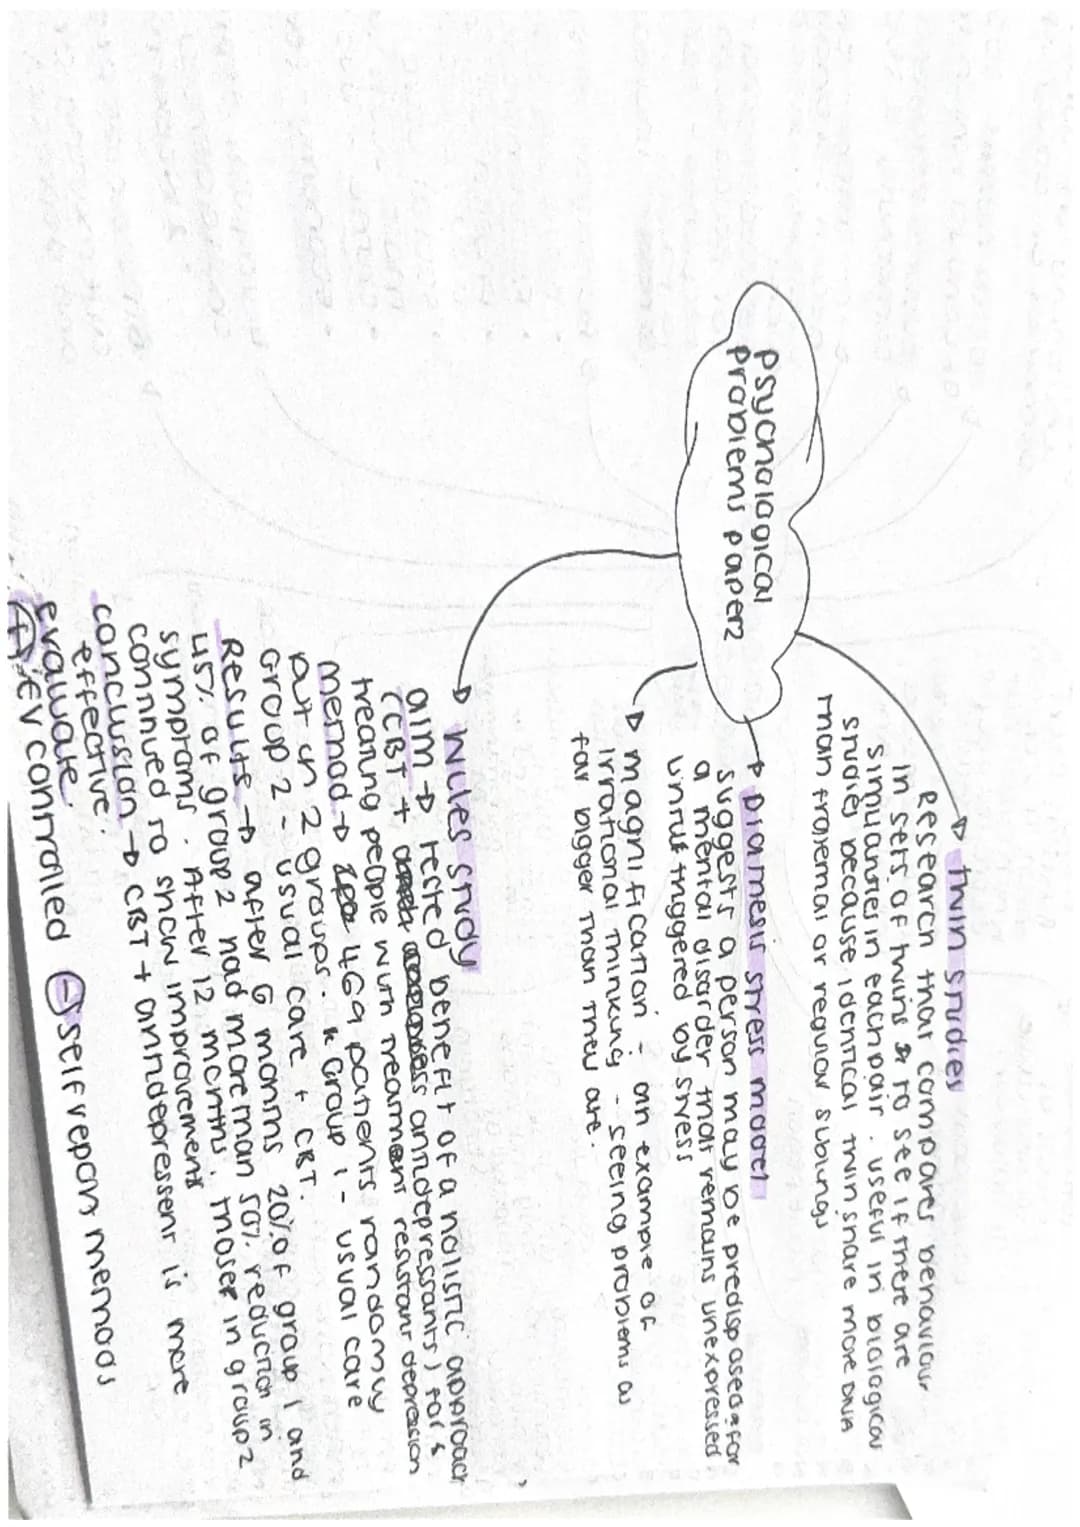 psychological
problems paper2
twin studies
Research that compares behaviour
in sets of twins to see if there are
similarities in each pair. useful in biological
studies because identical twin share more DNA
than fraternal or regular siblings
Diathesis stress model
suggests a person may be predisposed for
a mental disorder that remains unexpressed
until triggered by stress
magnification - an example of
irrational thinking - seeing problems as
far bigger than they are.
Wiles study
aim → tested benefit of a holistic approach
(CBT + antidepressants) for
treating people with treatment resistant depression
method → 469 patients randomly
put in 2 groups. Group 1 - usual care
Group 2 - usual care + CBT.
Results → after 6 months 20% of group 1 and
45% of group 2 had more than 50% reduction in
symptoms. After 12 months, those in group 2
continued to show improvement
conclusion → CBT + antidepressent is more
effective.
evaluate.
+ EV controlled - self report methods